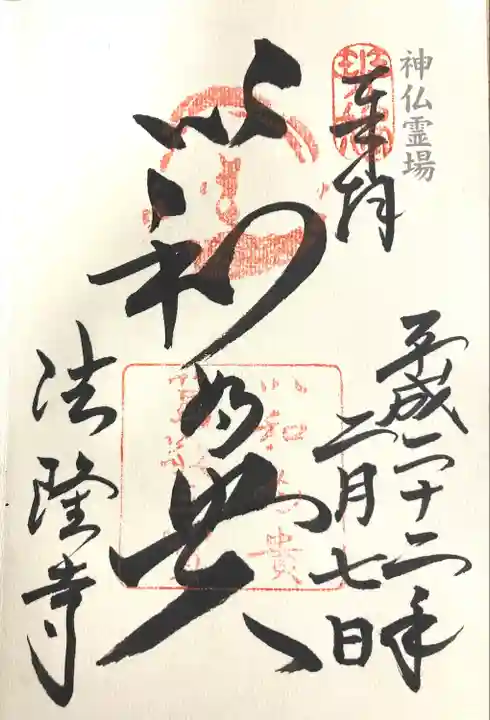 神仏霊場
奉拝
平成二十二年
二月七日
以和為貴
法隆寺
以和為貴